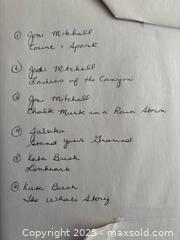 ① Joni Mitchell
Court & Spark
② Joni Mitchell
Ladies of the Canyon
③ Joni Mitchell
Chalk Mark in a Rain Storm
④
Stand your Ground
⑤ Kate Bush
Lionheart
⑥ Kate Bush
The Whole Story
Copyright 2025 - maxsold.com